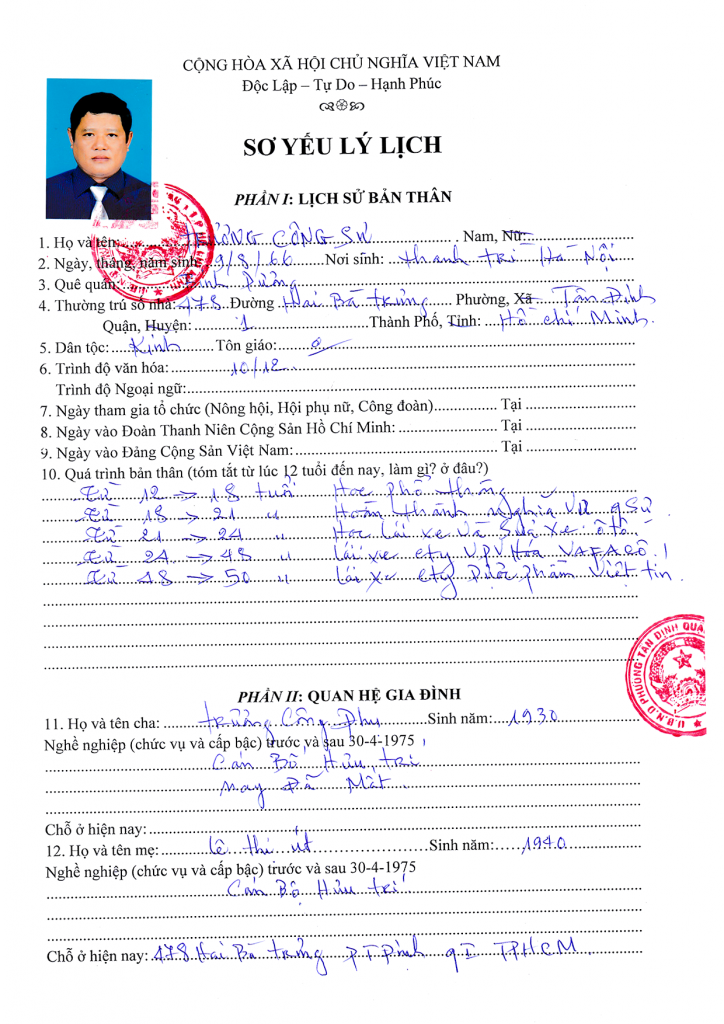 CỘNG HÒA XÃ HỘI CHỦ NGHĨA VIỆT NAM
Độc Lập – Tự Do – Hạnh Phúc
SƠ YẾU LÝ LỊCH
PHẦN I: LỊCH SỬ BẢN THÂN
1. Họ và tên: TRƯƠNG CÔNG SỰ Nam, Nữ
2. Ngày, tháng, năm sinh: 9/8/66 Nơi sinh: Thanh Trì Hà Nội
3. Quê quán: Bình Dương
4. Thường trú số nhà: 478 Đường Hai Bà Trưng Phường, Xã Tân Định
Quận, Huyện: 1 Thành Phố, Tỉnh: Hồ Chí Minh.
5. Dân tộc: Kinh Tôn giáo:
6. Trình độ văn hóa: 10/12
Trình độ Ngoại ngữ:
7. Ngày tham gia tổ chức (Nông hội, Hội phụ nữ, Công đoàn) Tại
8. Ngày vào Đoàn Thanh Niên Cộng Sản Hồ Chí Minh: Tại
9. Ngày vào Đảng Cộng Sản Việt Nam: Tại
10. Quá trình bản thân (tóm tắt từ lúc 12 tuổi đến nay, làm gì? ở đâu?)
Từ 12 → 18 tuổi Học phổ thông
Từ 18 → 21 " Hoàn thành nghĩa vụ qsự
Từ 21 → 24 " Học lái xe và sửa xe ô tô.
Từ 24 → 48 " lái xe cty VPVHóa VAFACÔ.
Từ 48 → 50 " lái xe cty Dược phẩm Việt tin.
U.B.N.D PHƯỜNG TÂN ĐỊNH QUẬ
PHẦN II: QUAN HỆ GIA ĐÌNH
11. Họ và tên cha: Trương Công Phu Sinh năm: 1930
Nghề nghiệp (chức vụ và cấp bậc) trước và sau 30-4-1975
Cán Bộ Hưu trí
nay Đã Mất.
Chỗ ở hiện nay:
12. Họ và tên mẹ: Lê Thị Út Sinh năm: 1940
Nghề nghiệp (chức vụ và cấp bậc) trước và sau 30-4-1975
Cán Bộ Hưu trí
Chỗ ở hiện nay: 478 Hai Bà Trưng P TĐịnh q I TPHCM.